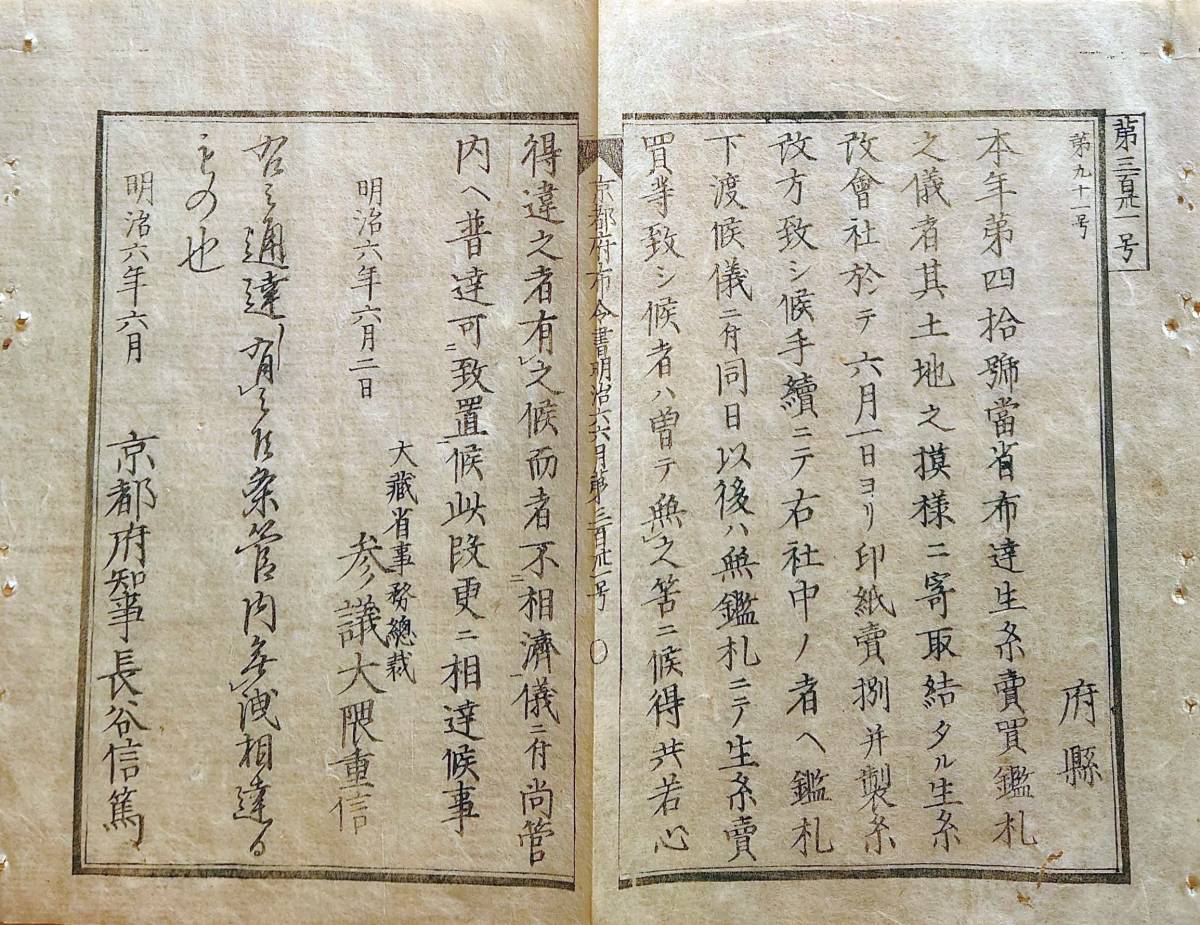 第三百卅一号
第九十一号
府縣
本年第四拾號當省布達生糸賣買鑑札
之儀者其土地之摸様ニ寄取結タル生糸
改會社於テ六月一日ヨリ印紙賣捌并製糸
改方致シ候手續ニテ右社中ノ者ヘ鑑札
下渡候儀ニ付同日以後ハ無鑑札ニテ生糸賣
買等致シ候者ハ曽テ無之筈ニ候得共若心
京都府布令書明治六六月第三百卅一号
得違之者有之候而者不相濟儀ニ付尚管
内ヘ普達可致置候此段更ニ相達候事
明治六年六月二日
大藏省事務總裁
参議大隈重信
右之通達有之候条管内無洩相達る
もの也
明治六年六月
京都府知事長谷信篤